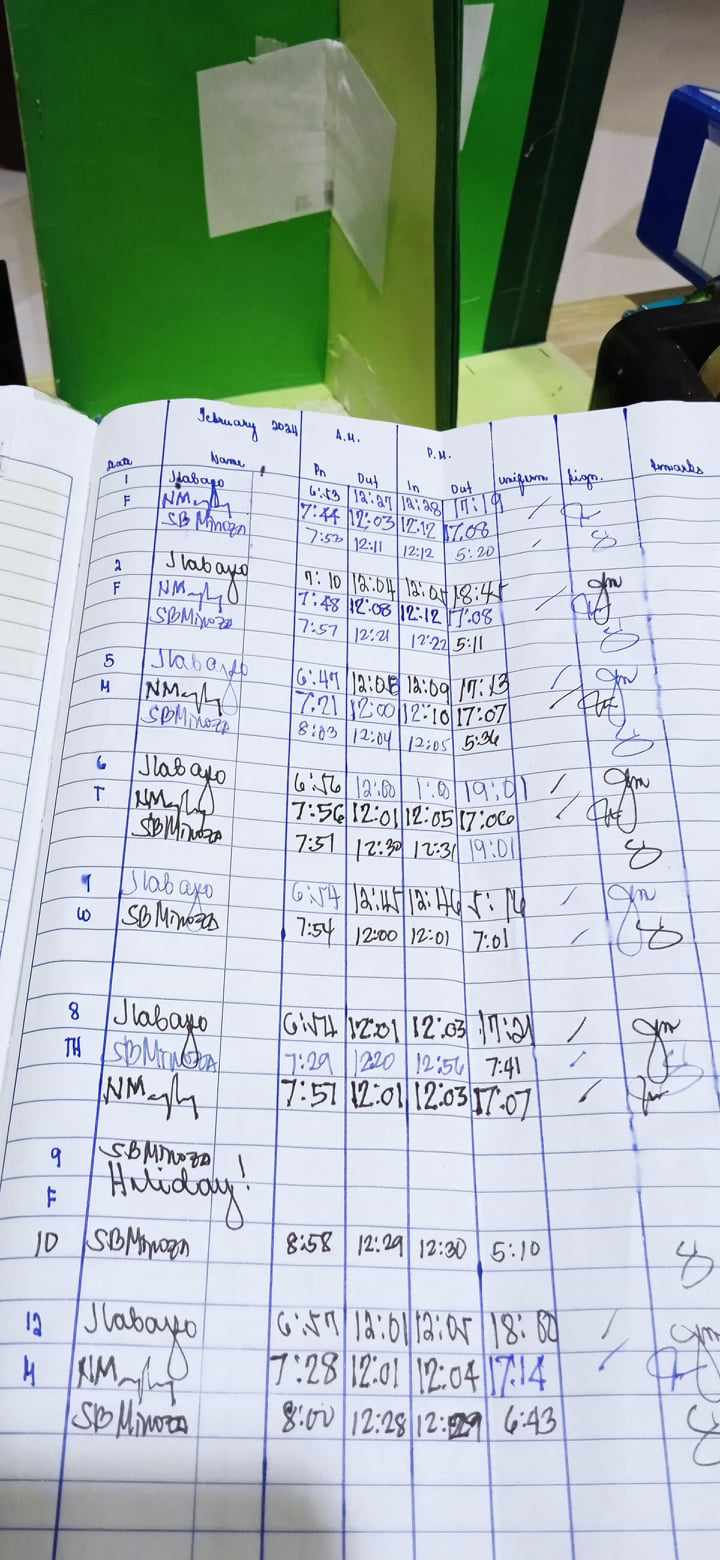 February 2024 A.M. P.M.
Date Name In Out In Out uniform sign. Remarks
1 Jlabayo 6:53 12:27 12:28 17:19
F 7:44 12:03 12:12 17:08
SBMinoza 7:50 12:11 12:12 5:20
2 Jlabayo 7:10 12:04 12:05 18:45
F 7:48 12:08 12:12 17:08
SBMinoza 7:57 12:21 12:22 5:11
5 Jlabayo 6:47 12:08 12:09 17:13
M 7:21 12:00 12:10 17:07
SBMinoza 8:03 12:04 12:05 5:36
6 Jlabayo 6:56 12:00 1:00 19:01
T 7:56 12:01 12:05 17:06
SBMinoza 7:51 12:30 12:31 19:01
7 Jlabayo 6:54 12:45 12:46 5:16
W SBMinoza 7:54 12:00 12:01 7:01
8 Jlabayo 6:54 12:01 12:03 17:21
TH SBMinoza 7:29 1220 12:56 7:41
7:57 12:01 12:03 17:07
9 SBMinoza
F Holiday!
10 SBMinoza 8:58 12:29 12:30 5:10
12 Jlabayo 6:57 12:01 12:05 18:00
M 7:28 12:01 12:04 17:14
SBMinoza 8:00 12:28 12:29 6:43